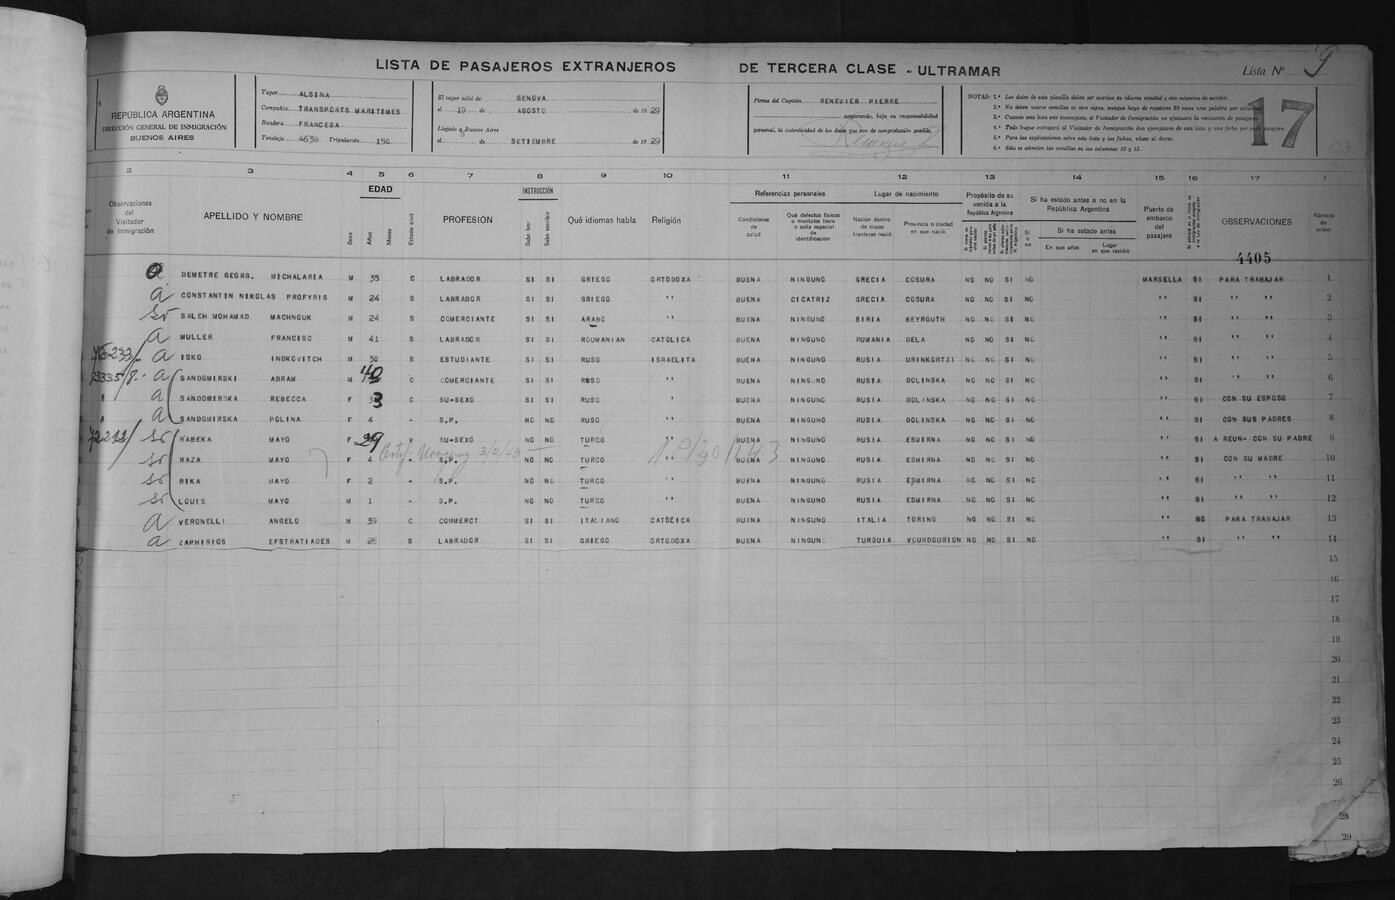 LISTA DE PASAJEROS EXTRANJEROS DE TERCERA CLASE - ULTRAMAR
Lista Nº 9
REPÚBLICA ARGENTINA
DIRECCIÓN GENERAL DE INMIGRACIÓN
BUENOS AIRES
Vapor ALSINA
Compañía TRANSPORTS MARITIMES
Bandera FRANCESA
Tonelaje 4630 Tripulación 150
El vapor salió de GENOVA
el 19 de AGOSTO de 1929
Llegado a Buenos Aires
el de SETIEMBRE de 1929
Firma del Capitán RENEVIER PIERRE
asegurando, bajo su responsabilidad
personal, la autenticidad de los datos que son de comprobación posible.
NOTAS: 1.ª Los datos de esta planilla deben ser escritos en idioma español y con máquina de escribir.
3.ª Cuando una lista esté incompleta, el Visitador de Inmigración no efectuará la revisación de pasajeros
17
2 3 4 5 6 7 8 9 10 11 12 13 14 15 16 17 1
Observaciones del Visitador de Inmigración
APELLIDO Y NOMBRE
Sexo
EDAD
Años
Meses
Estado civil
PROFESIÓN
INSTRUCCIÓN
Sabe leer
Sabe escribir
Qué idiomas habla
Religión
Referencias personales
Condiciones de salud
Qué defectos físicos o mentales tiene o seña especial de identificación
Lugar de nacimiento
Nación dentro de cuyas fronteras nació
Provincia o ciudad en que nació
Propósito de su venida a la República Argentina
Si ha estado antes o no en la República Argentina
Si o no
Si ha estado antes
En que años
Lugar en que residió
Puerto de embarco del pasajero
OBSERVACIONES
Número de orden
4405
a DEMETRE GEORG. MICHALARIA M 35 C LABRADOR SI SI GRIEGO ORTODOXA BUENA NINGUNO GRECIA COSURA NO NO SI NO MARSELLA SI PARA TRABAJAR 1
a CONSTANTIN NIKOLAS PROFYRIS M 24 S LABRADOR SI SI GRIEGO " BUENA CICATRIZ GRECIA COSURA NO NO SI NO " SI " " 2
SALEH MOHAMAD MACHNOUK M 24 S COMERCIANTE SI SI ARABO " BUENA NINGUNO SIRIA BEYROUTH NO NO SI NO " SI " " 3
a MULLER FRANCISC M 41 S LABRADOR SI SI ROUMANIAN CATOLICA BUENA NINGUNO RUMANIA DELA NO NO SI NO " SI " " 4
a ISKO INDKOVITCH M 30 S ESTUDIANTE SI SI RUSO ISRAELITA BUENA NINGUNO RUSIA URINKORTZI NO NO SI NO " SI " " 5
a SANDOMIRSKI ABRAM M 40 C COMERCIANTE SI SI RUSO " BUENA NINGUNO RUSIA DOLINSKA NO NO SI NO " SI " " 6
a SANDOMIRSKA REBECCA F 33 C SU-SEXO SI SI RUSO " BUENA NINGUNO RUSIA DOLINSKA NO NO SI NO " SI CON SU ESPOSO 7
a SANDOMIRSKA POLINA F 4 - S.P. NO NO RUSO " BUENA NINGUNO RUSIA DOLINSKA NO NO SI NO " SI CON SUS PADRES 8
RABEKA MAYO F 29 SU-SEXO NO NO TURCO " BUENA NINGUNO RUSIA ESMIRNA NO NO SI NO " SI A REUN- CON SU PADRE 9
RAZA MAYO F 4 - S.P. NO NO TURCO " BUENA NINGUNO RUSIA ESMIRNA NO NO SI NO " SI CON SU MADRE 10
RIKA MAYO F 2 - S.P. NO NO TURCO " BUENA NINGUNO RUSIA ESMIRNA NO NO SI NO " SI " " 11
LOUIS MAYO M 1 - S.P. NO NO TURCO " BUENA NINGUNO RUSIA ESMIRNA NO NO SI NO " SI " " 12
a VERONELLI ANGELO M 39 C COMMERCT SI SI ITALIANO CATÓLICA BUENA NINGUNO ITALIA TORINO NO NO SI NO " NO PARA TRABAJAR 13
a ZAPHIRIOS EFSTRATIADES M 26 S LABRADOR SI SI GRIEGO ORTODOXA BUENA NINGUNO TURQUIA VOURDOURION NO NO SI NO " SI " " 14
15
16
17
18
19
20
21
22
23
24
25
26
28
29